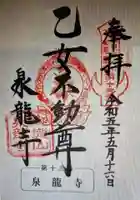 奉拝
令和五年五月十六日
乙女不動尊
泉龍寺
第十
泉龍寺